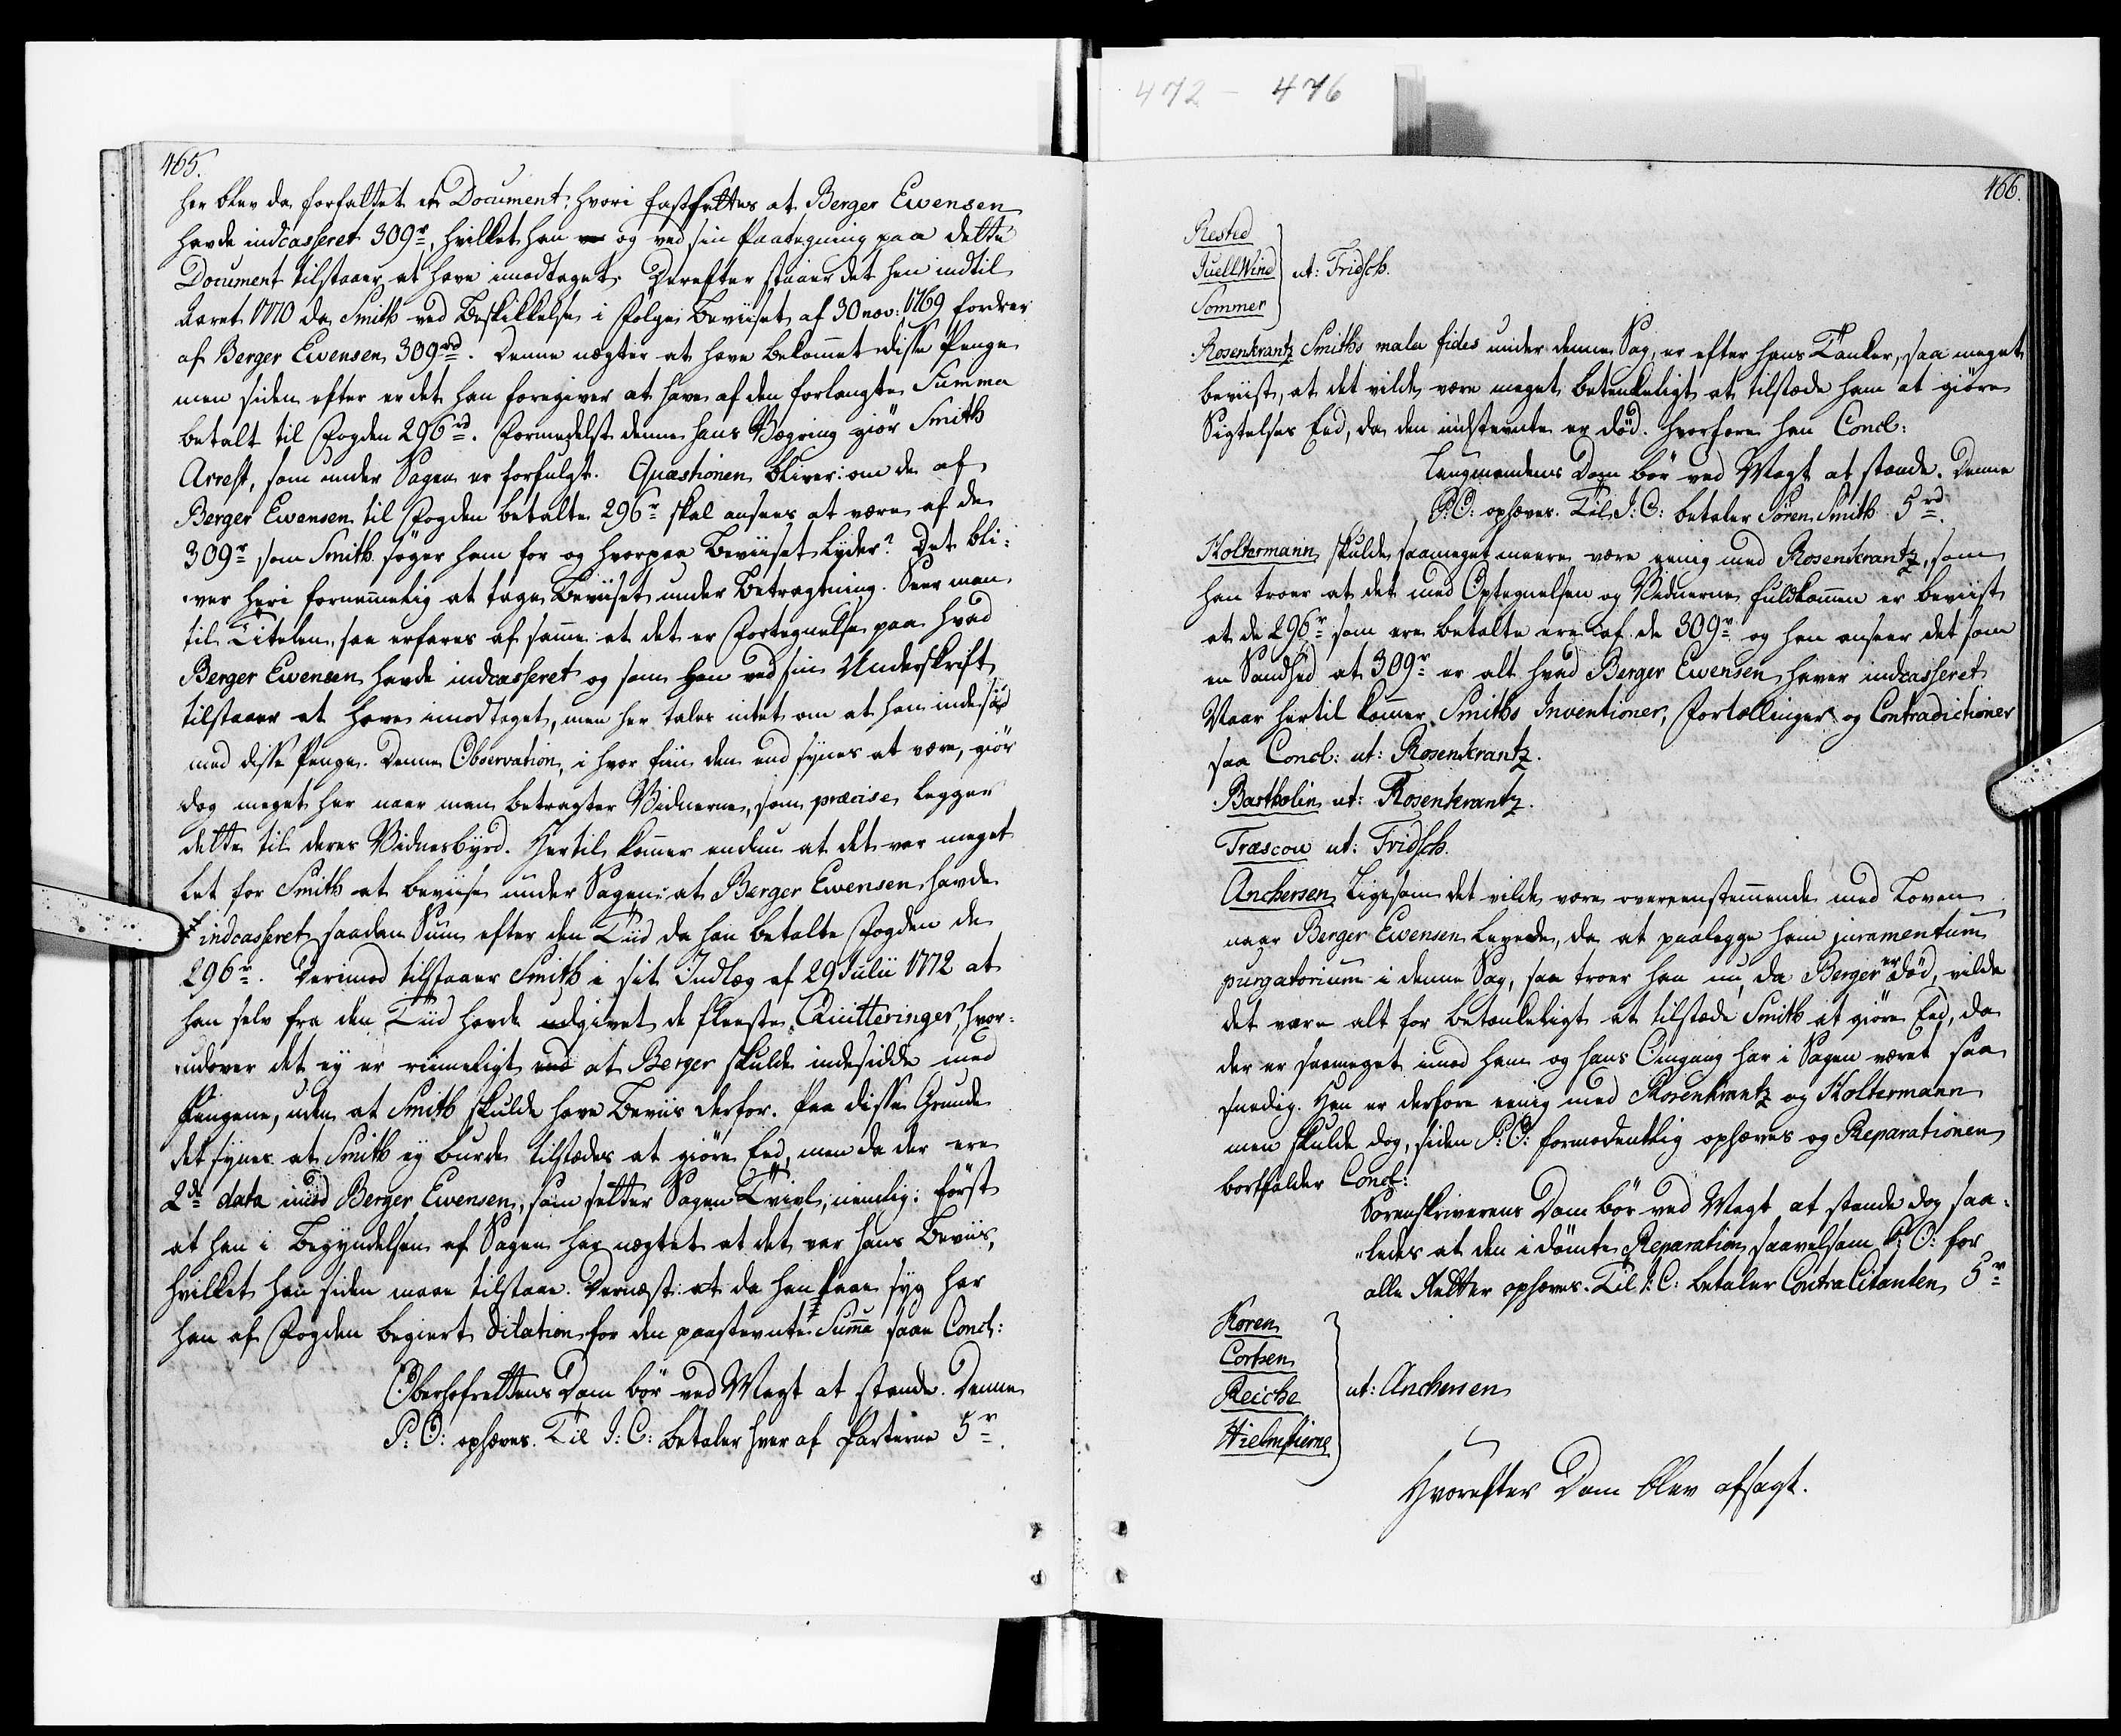 472 - 476
465.
her blev da forfattet et Document, hvori fastsættes at Berger Ewensen
havde indcasseret 309r, hvilket han og ved sin Paategning paa dette
Document tilstaaer at have imodtaget. Derefter staaer det hen indtil
Aaret 1770 da Smith ved Beskikkelse i Følge Beviiset af 30 nov: 1769 fordrer
af Berger Ewensen 309rd. Denne nægter at have bekommet disse Penge
men siden efter er det han foregiver at have af den forlangte Summa
betalt til Fogden 296rd. Formedelst denne hans Vægring giör Smith
Arrest, som under Sagen er forfulgt. Quæstionen bliver: om de af
Berger Ewensen til Fogden betalte 296r skal ansees at være af de
309r som Smith søger ham for og hvorpaa Beviiset lyder? Det bli:
ver heri fornemmelig at tage Beviiset under Betragtning. Seer man
til Titelen, saa erfares af samme at det er Fortegnelse paa hvad
Berger Ewensen havde indcasseret og som han ved sin Underskrift
tilstaaer at have imodtaget, men her tales intet om at han indesad
med disse Penge. Denne Observation, i hvor fiin den end synes at være, giör
dog meget her naar man betragter Vidnerne, som præcise legger
dette til deres Vidnesbyrd. Hertil kommer endnu at det var meget
let for Smith at beviise under Sagen: at Berger Ewensen havde
indcasseret saadan Sum efter den Tiid da han betalte Fogden de
296r. Derimod tilstaaer Smith i sit Indlæg af 29 Julii 1772 at
han selv fra den Tiid havde udgivet de fleeste Quitteringer, hvor:
udover det ey er rimeligt at Berger skulde indesidde med
Pengene, uden at Smith skulde have Beviis derfor. Paa disse Grunde
det synes at Smith ey burde tilstædes at giöre Eed, men da der ere
2de data imod Berger Ewensen, som sætter Sagen i Tvivl, nemlig: først
at han i Begyndelsen af Sagen har nægtet at det var hans Beviis,
hvilket han siden maae tilstaae. Dernæst: at da han laae syg har
han af Fogden begiert Dilation for den paastevnte Summa saae Concl:
Oberhofrettens Dom bör ved Magt at stande. Denne
P: O: ophæves. Til J: C: betaler hver af Parterne 5r.
466.
Rested
Juell Wind
Sommer
ut: Fridsch.
Rosenkrantz Smiths mala fides under denne Sag, er efter hans Tanker, saa meget
beviist, at det vilde være meget betenkeligt at tilstæde ham at giöre
Sigtelses Eed, da den indstevnte er död. Hvorfore han Concl:
Laugmandens Dom bör ved Magt at stande. Denne
P: O: ophæves. Til J: C: betaler Sören Smith 5rd.
Holtermann skulde saameget meere være eenig med Rosenkrantz, som
han troer at det med Optegnelsen og Vidnerne fuldkommen er beviist
at de 296r som ere betalte ere af de 309r og han anseer det som
en Sandhed at 309r er alt hvad Berger Ewensen haver indcasseret
Naar hertil kommer Smiths Inventioner, Fortællinger og Contradictioner
saa Concl: ut: Rosenkrantz.
Bartholin ut: Rosenkrantz.
Træscow ut: Fridsch.
Anchersen Ligesom det vilde være overeenstemmende med Loven
naar Berger Ewensen levede, da at paalegge ham juramentum
purgatorium i denne Sag, saa troer han nu, da Berger er död, vilde
det være alt for betænkeligt at tilstæde Smith at giöre Eed, da
der er saameget imod ham og hans Omgang har i Sagen været saa
snedig. Han er derfore eenig med Rosenkrantz og Holtermann
men skulde dog, siden P: O: formodentlig ophæves og Reparationen
bortfalder Concl:
Sorenskriverens Dom bör ved Magt at stande dog saa:
ledes at den idömte Reparation saavelsom P: O: for
alle Retter ophæves. Til J: C: betaler ContraCitanten 5r
Koren
Cortsen
Reiche
Hielmstierne
ut: Anchersen
Hvorefter Dom blev afsagt.